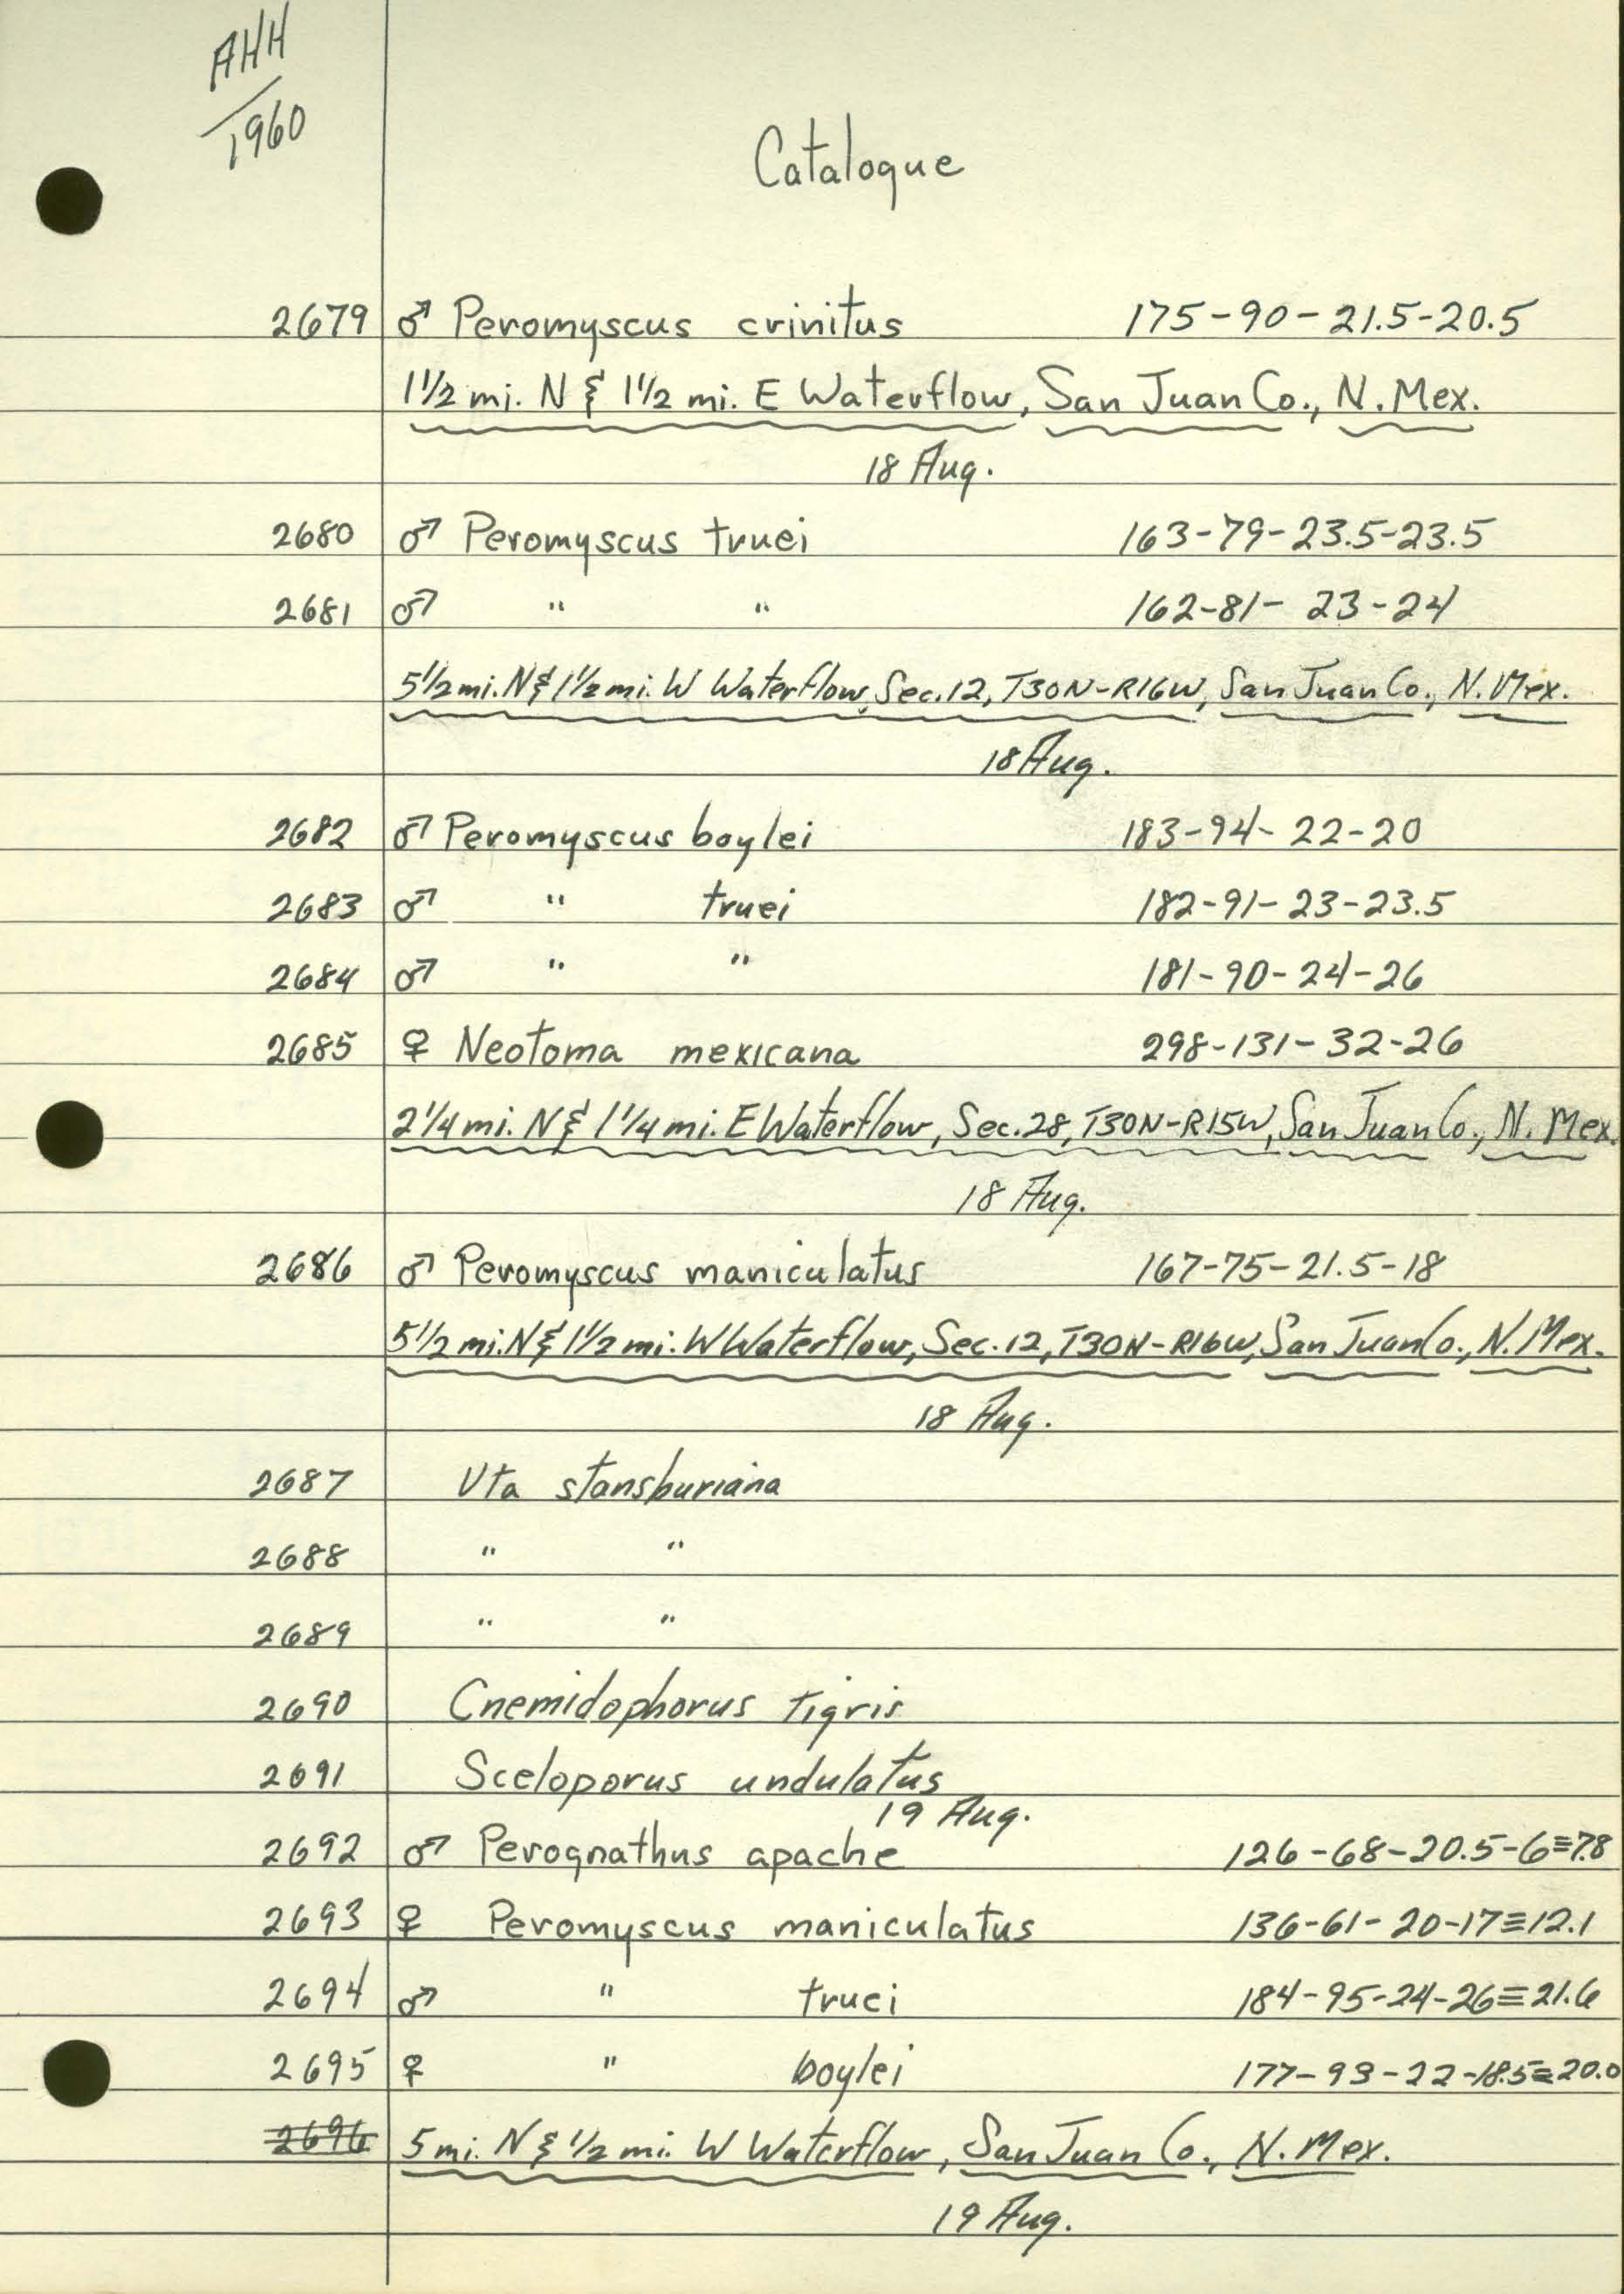 AHH
1960
Catalogue
2679 ♂ Peromyscus crinitus 175-90-21.5-20.5
1 1/2 mi. N & 1 1/2 mi. E Waterflow, San Juan Co., N. Mex.
18 Aug.
2680 ♂ Peromyscus truei 163-79-23.5-23.5
2681 ♂ " " 162-81-23-24
5 1/2 mi. N & 1 1/2 mi. W Waterflow, Sec. 12, T30N-R16W, San Juan Co., N. Mex.
18 Aug.
2682 ♂ Peromyscus boylei 183-94-22-20
2683 ♂ " truei 182-91-23-23.5
2684 ♂ " " 181-90-24-26
2685 ♀ Neotoma mexicana 298-131-32-26
2 1/4 mi. N & 1 1/4 mi. E Waterflow, Sec. 28, T30N-R15W, San Juan Co., N. Mex.
18 Aug.
2686 ♂ Peromyscus maniculatus 167-75-21.5-18
5 1/2 mi. N & 1 1/2 mi. W Waterflow, Sec. 12, T30N-R16W, San Juan Co., N. Mex.
18 Aug.
2687 Uta stansburiana
2688 " "
2689 " "
2690 Cnemidophorus tigris
2691 Sceloporus undulatus
19 Aug.
2692 ♂ Perognathus apache 126-68-20.5-6≡7.8
2693 ♀ Peromyscus maniculatus 136-61-20-17≡12.1
2694 ♂ " truei 184-95-24-26≡21.6
2695 ♀ " boylei 177-93-22-18.5≡20.0
2696 5 mi. N & 1/2 mi. W Waterflow, San Juan Co., N. Mex.
19 Aug.